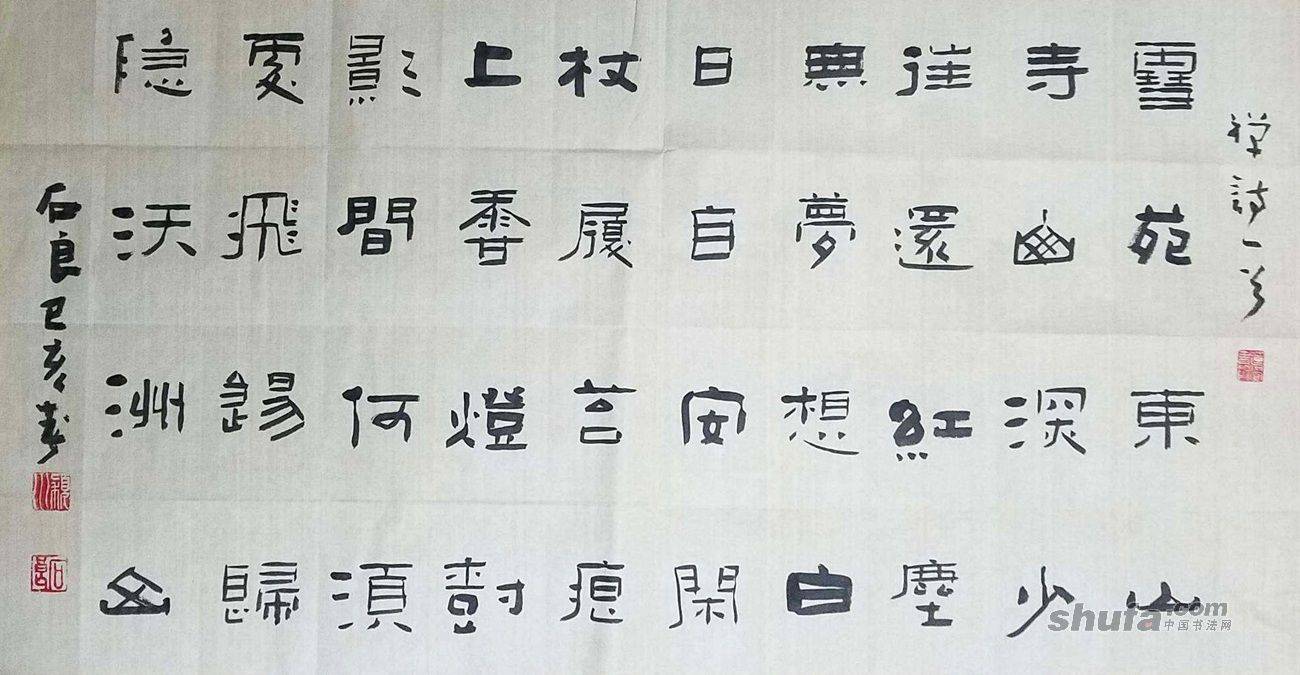 禪詩一首
雪苑東山
寺山深少
往還紅塵
無夢想白
日自安閑
杖履苔痕
上香燈樹
影間何須
更飛錫歸
隱沃洲山
石良己亥書
shufa.com
中国书法网